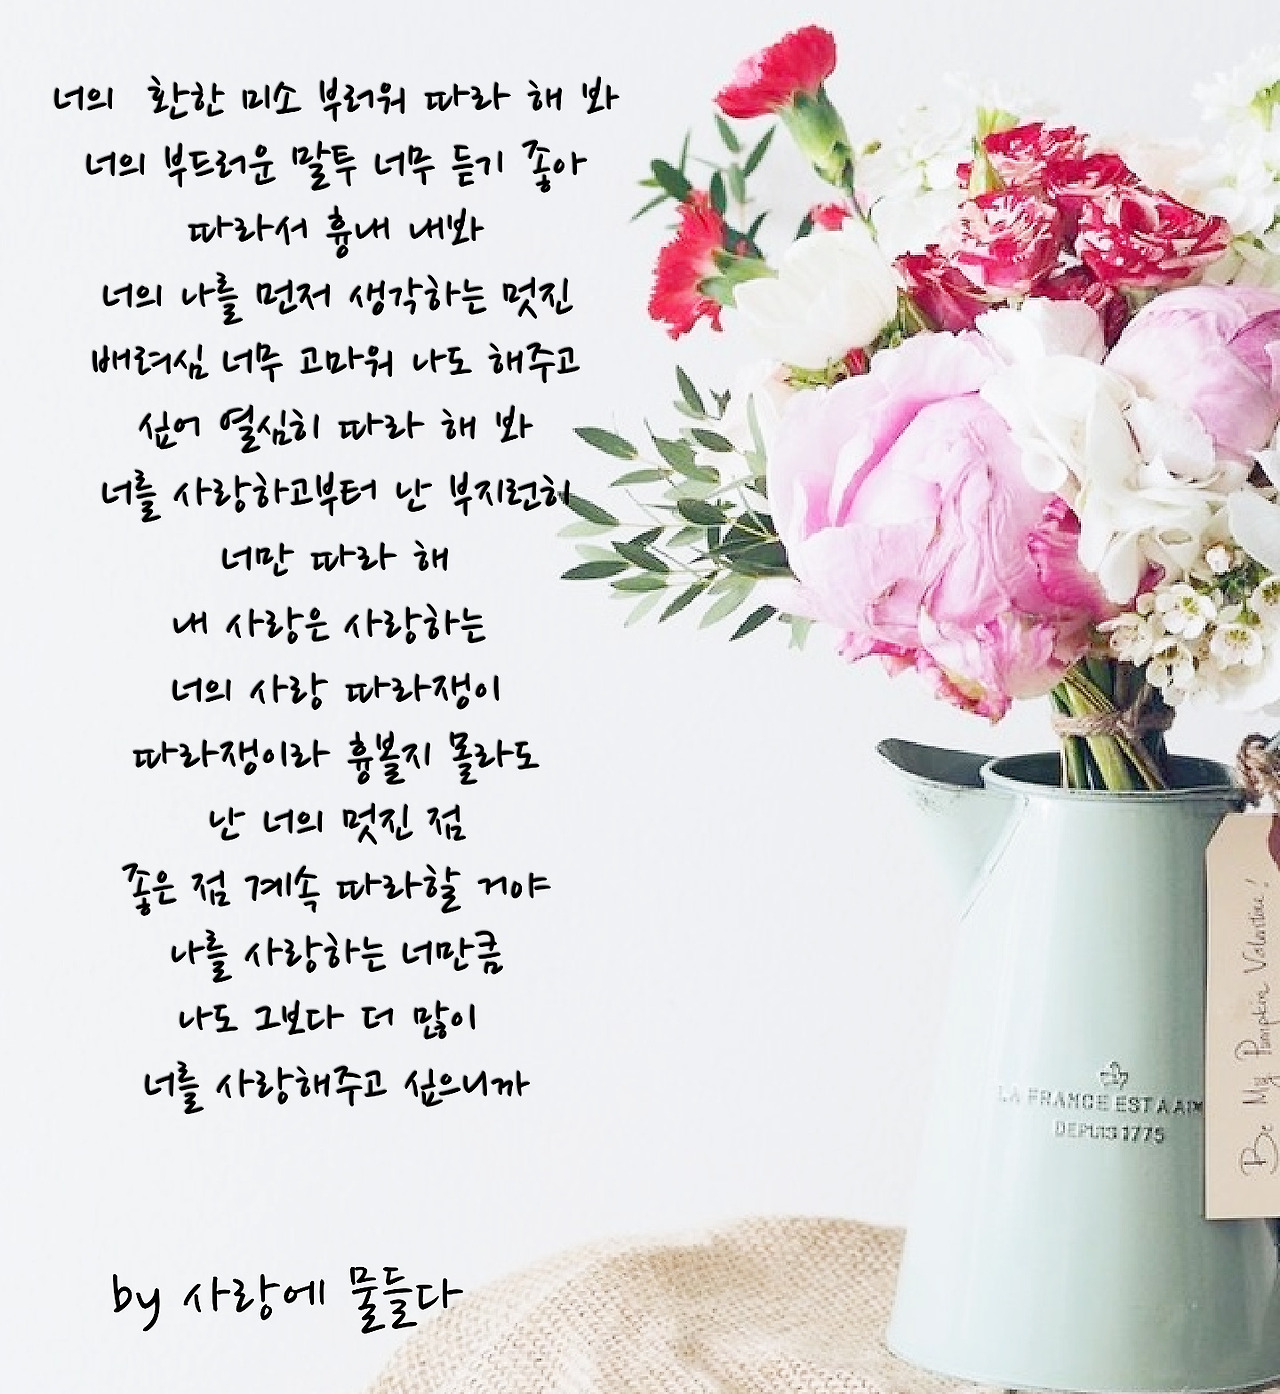 너의 환한 미소 부러워 따라 해 봐
너의 부드러운 말투 너무 듣기 좋아
따라서 흉내 내봐
너의 나를 먼저 생각하는 멋진
배려심 너무 고마워 나도 해주고
싶어 열심히 따라 해 봐
너를 사랑하고부터 난 부지런히
너만 따라 해
내 사랑은 사랑하는
너의 사랑 따라쟁이
따라쟁이라 흉볼지 몰라도
난 너의 멋진 점
좋은 점 계속 따라할 거야
나를 사랑하는 너만큼
나도 그보다 더 많이
너를 사랑해주고 싶으니까
by 사랑에 물들다
LA FRANCE EST A AIM
DEPUIS 1775
Be My Pumpkin Valentine!